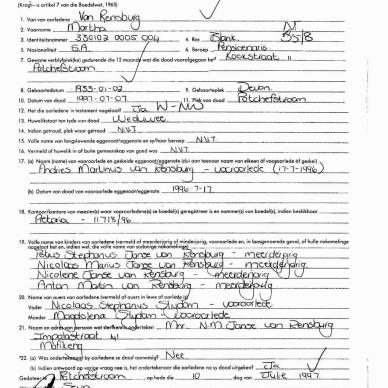 (Kragtens artikel 7 van die Boedelwet, 1965)
1. Van van oorledene Van Rensburg
2. Voorname Martha N
3. Identiteitsnommer 330102 0005 004 4. Ras Blank 55/8
5. Nasionaliteit S.A. 6. Beroep Pensioenaris
7. Gewone verblyfplek(ke) gedurende die 12 maande wat die dood voorafgegaan het Kockstraat 11
Potchefstroom
8. Geboortedatum 1933-01-02 9. Geboorteplek Devon
10. Datum van dood 1997-07-07 11. Plek van dood Potchefstroom
12. Het die oorledene 'n testament nagelaat Ja W-NW
13. Huwelikstaat ten tyde van dood Weduwee
14. Indien getroud, plek waar getroud N.V.T
15. Volle name van langslewende eggenoot/eggenote en sy/haar beroep N.V.T.
16. Vermeld of huwelik in of buite gemeenskap van goed was N.V.T
17. (a) Naam (name) van vooroorlede of geskeide eggenoot/eggenote (dui aan teenoor naam van elkeen of vooroorlede of geskei)
Andries Martinus van Rensburg - vooroorlede (17-7-1996)
(b) Datum van dood van vooroorlede eggenoot/eggenote 1996-7-17
18. Kantoor/kantore van meester(s) waar vooroorledene(s) se boedel(s) geregistreer is en nommer(s) van boedel(s), indien beskikbaar
Pretoria - 11713/96
19. Volle name van kinders van oorledene (vermeld of meerderjarig of minderjarig,
Petrus Stephanus Janse van Rensburg - meerderjarig
Nicolaas Marius Janse van Rensburg - meerderjarig
Nicolene Janse van Rensburg - meerderjarig
Anton Martin van Rensburg - meerderjarig
20. Name van ouers van oorledene (vermeld of ouers in lewe of oorlede is)
Vader Nicolaas Stephanus Strydom - vooroorlede
Moeder Magdalena Strydom - vooroorlede
21. Naam en adres van persoon wat sterfkennis onderteken Mnr. N.M. Janse van Rensburg
Impalastraat 41
Mafikeng
*22. (a) Was ondertekenaar by oorledene se dood aanwesig? Nee
(b) Indien antwoord op vorige vraag nee is, het ondertekenaar die oorledene na sy dood uitgeken? Ja
Gedateer te Potchefstroom , op hede die 10 dag van Julie 1997